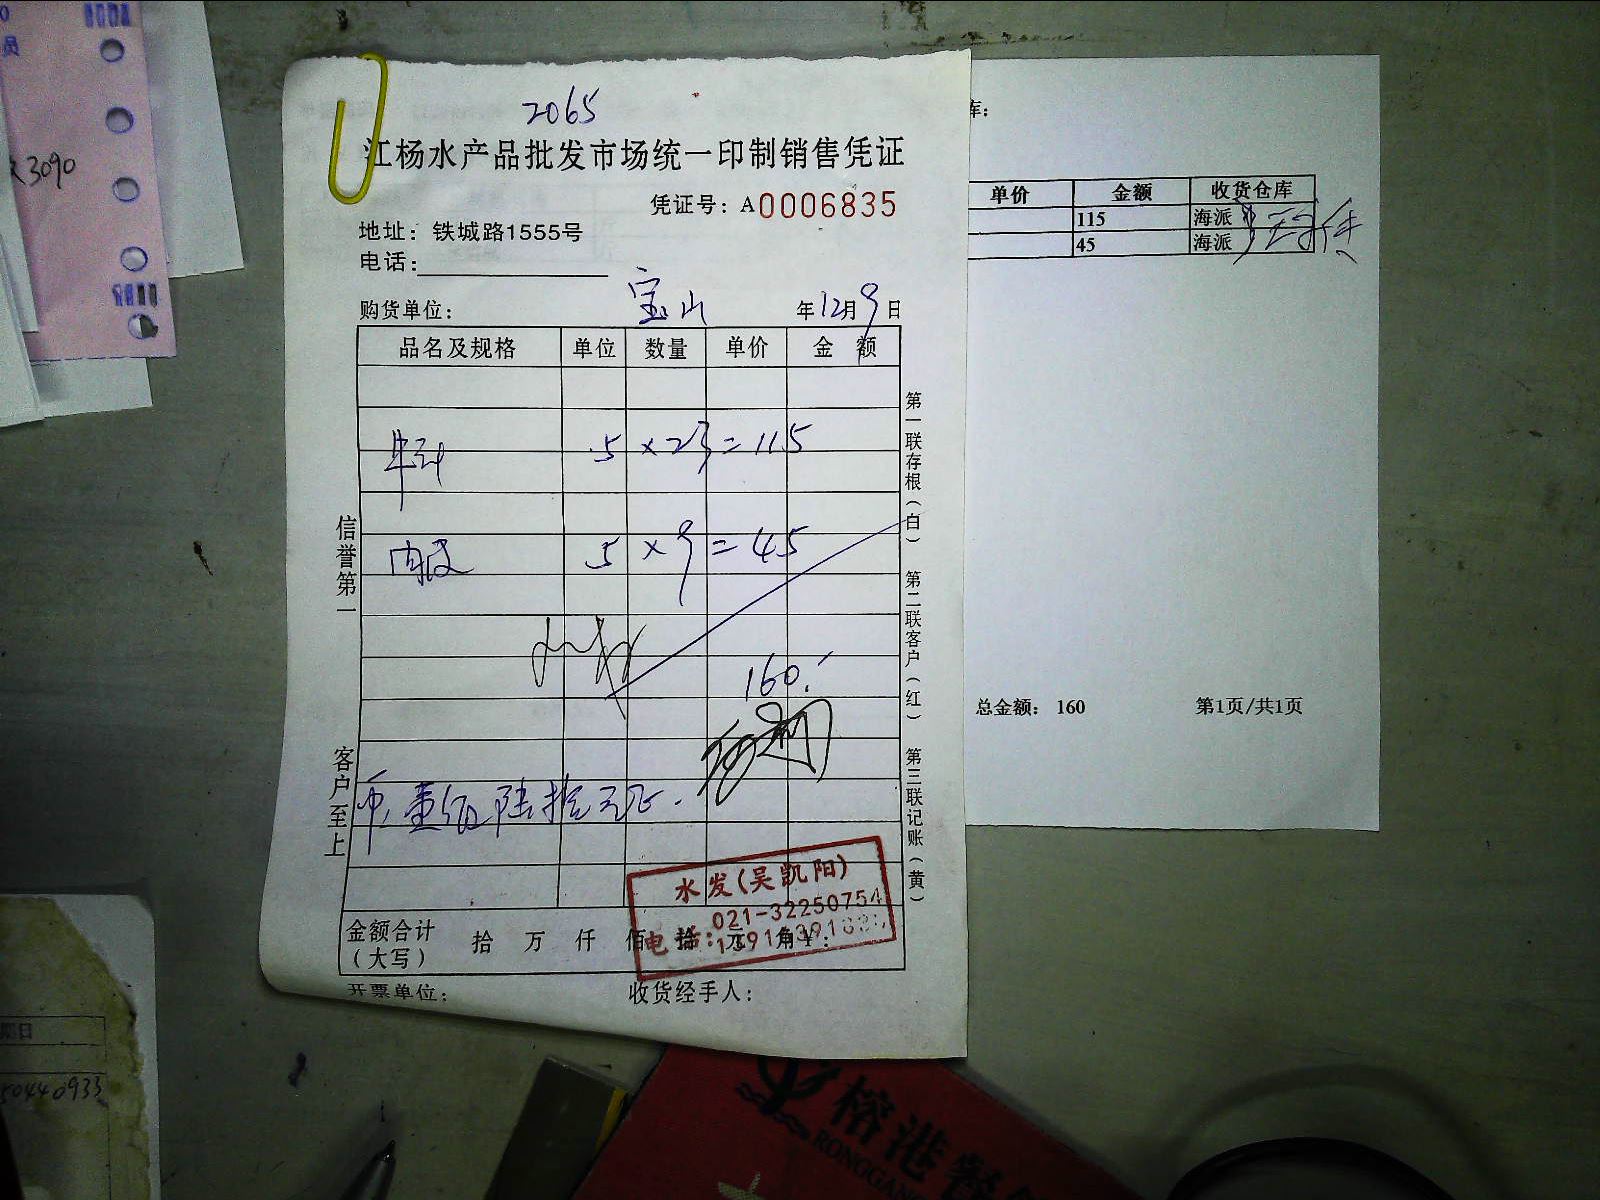 2065
江杨水产品批发市场统一印制销售凭证
凭证号：A0006835
地址：铁城路1555号
电话：
购货单位： 宝山 年12月9日
品名及规格 单位 数量 单价 金额
5 × 23 = 115
肉皮 5 × 9 = 45
160.
币壹佰陆拾元正.
金额合计（大写） 拾 万 仟 佰 拾 元 角 ￥：
水发(吴凯阳)
021-32250754
电话：
开票单位： 收货经手人：
信誉第一
客户至上
第一联存根（白）
第二联客户（红）
第三联记账（黄）
库：
单价 金额 收货仓库
115 海派
45 海派
总金额： 160 第1页/共1页
3090
员
期日
50440933
榕港餐
RONGGANG